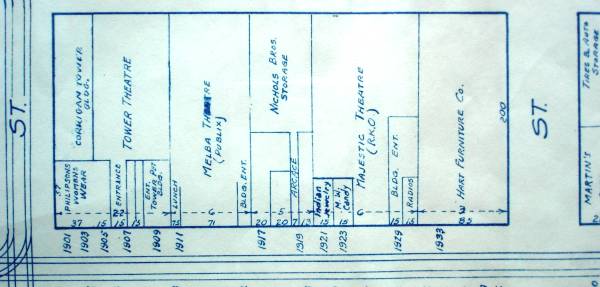 ST.
CORRIGAN TOWER
BLDG.
TOWER THEATRE
MELBA THEATRE
(PUBLIX)
NICHOLS BROS.
STORAGE
MAJESTIC THEATRE
(R.K.O.)
HART FURNITURE CO.
200
ST.
TIRES & AUTO
STORAGE
MARTIN'S
PHILIPSONS
WOMENS
WEAR
ENTRANCE
ENT.
TOWER PET.
BLDG.
LUNCH
BLDG. ENT.
ARCADE
Indian
Jewelry
M.W.
Candy
BLDG. ENT.
RADIOS
37
15
15
15
71
20
20
7
15
15
15
15
85
1901
1903
1905
1907
1909
1911
1917
1919
1921
1923
1929
1933